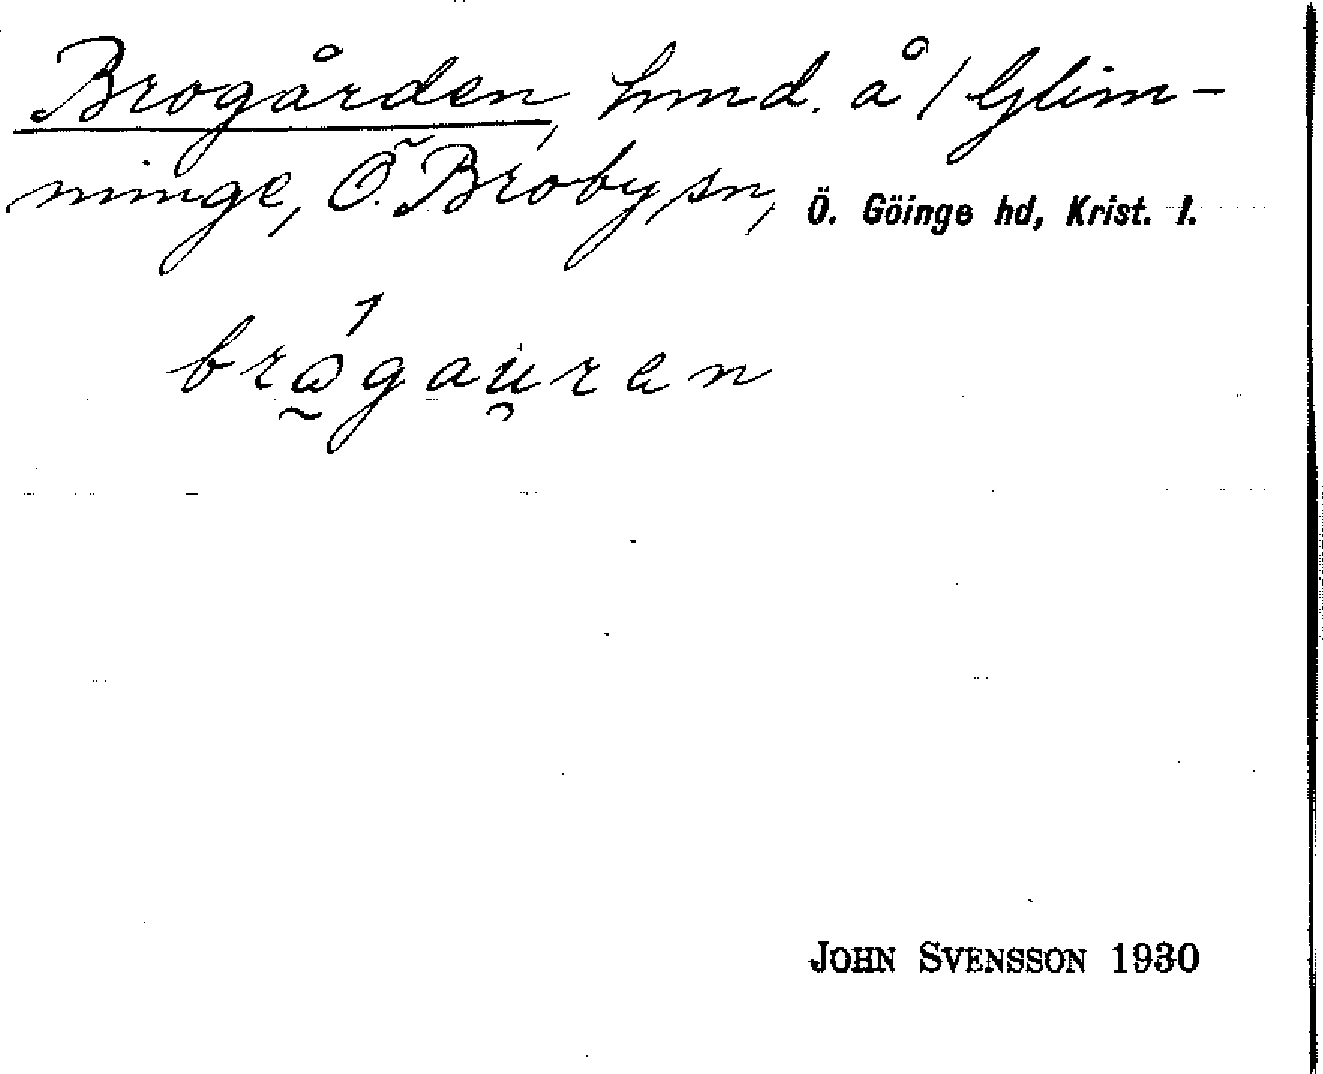 Brogården, hmd. å 1 Glim-
minge, Ö. Broby sn, Ö. Göinge hd, Krist. l.
brågau̯ren
JOHN SVENSSON 1930